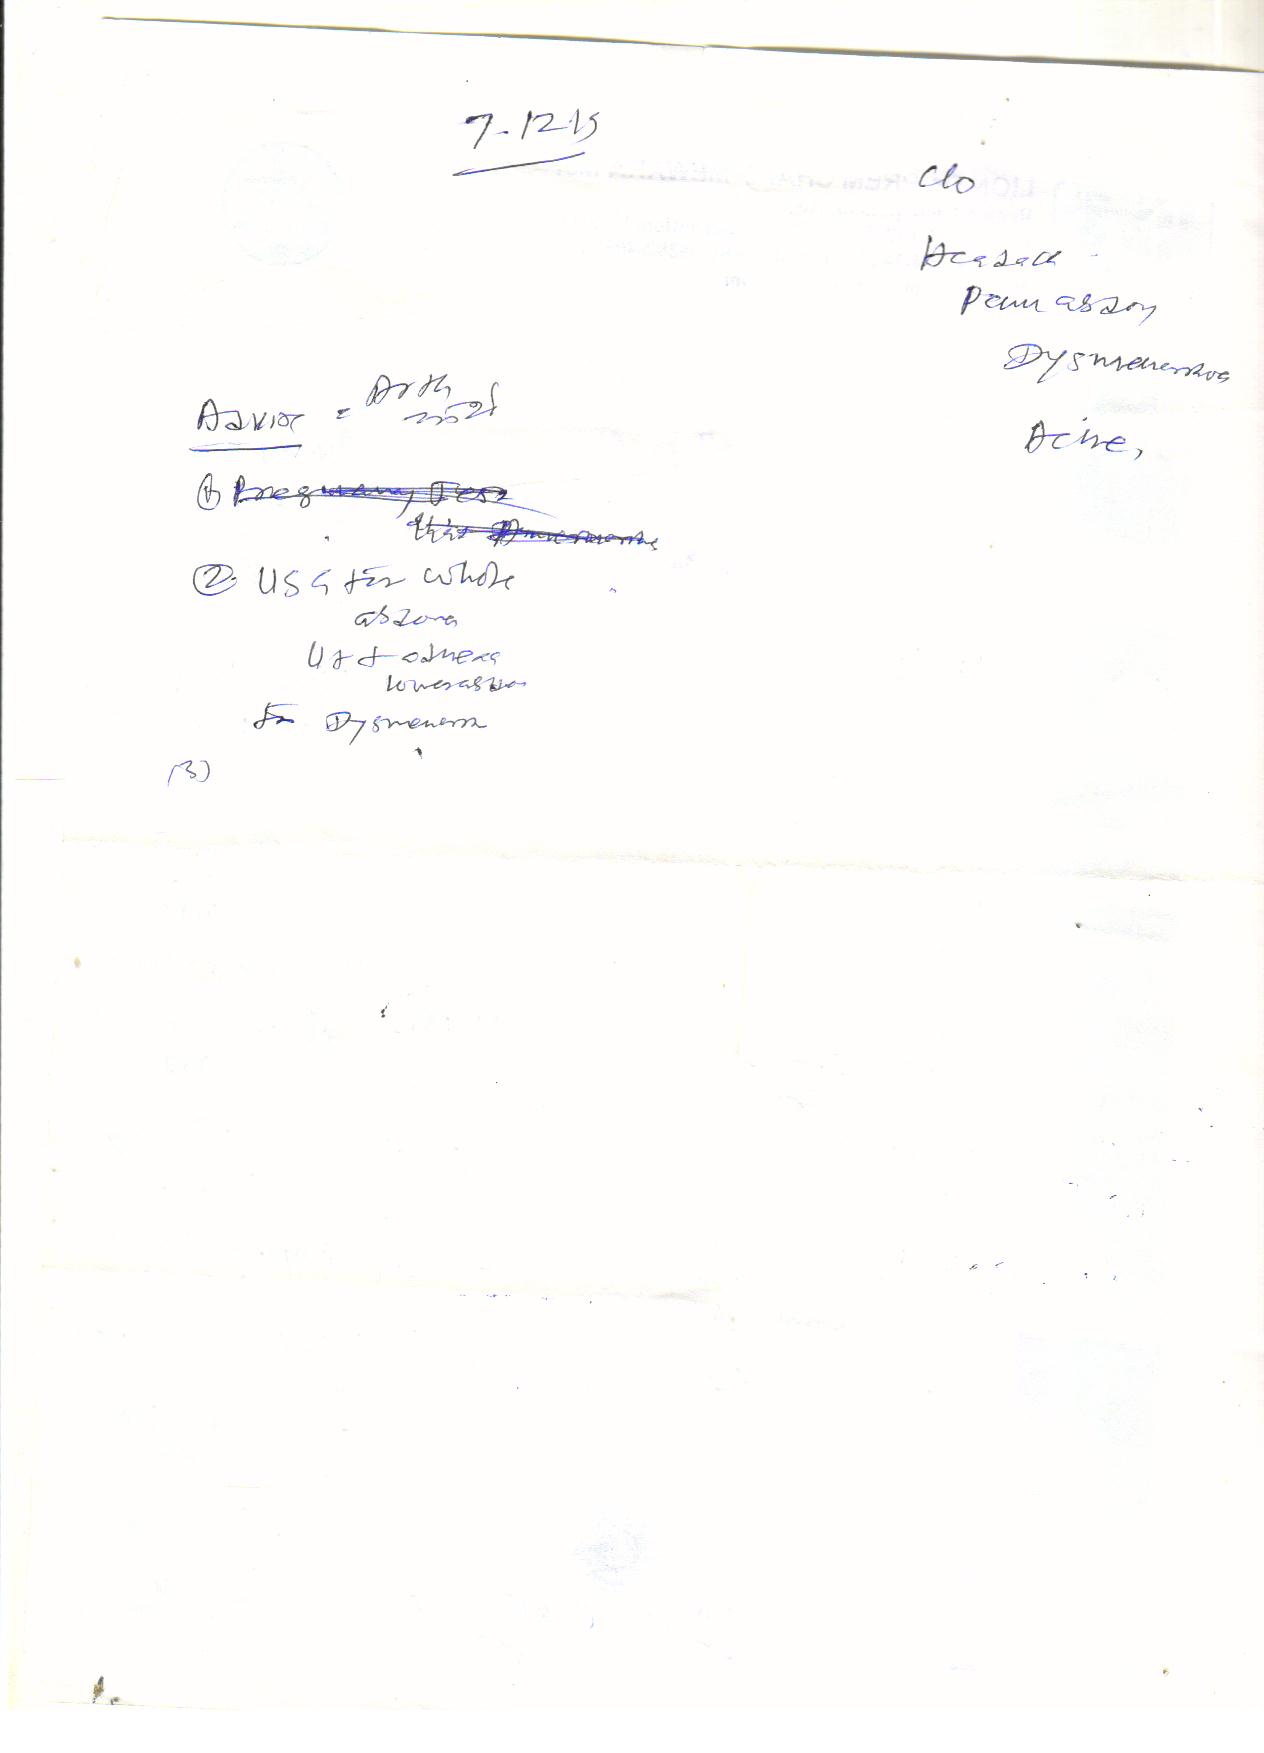 7-12-15
C/o
Headach
Pain abdom
Dysmenorrhoea
Acne,
Advise =
① Pregnancy Test
this
② USG for whole
abdomen
Ut + adnexa
lower abdomen
for Dysmenorrh
(3)